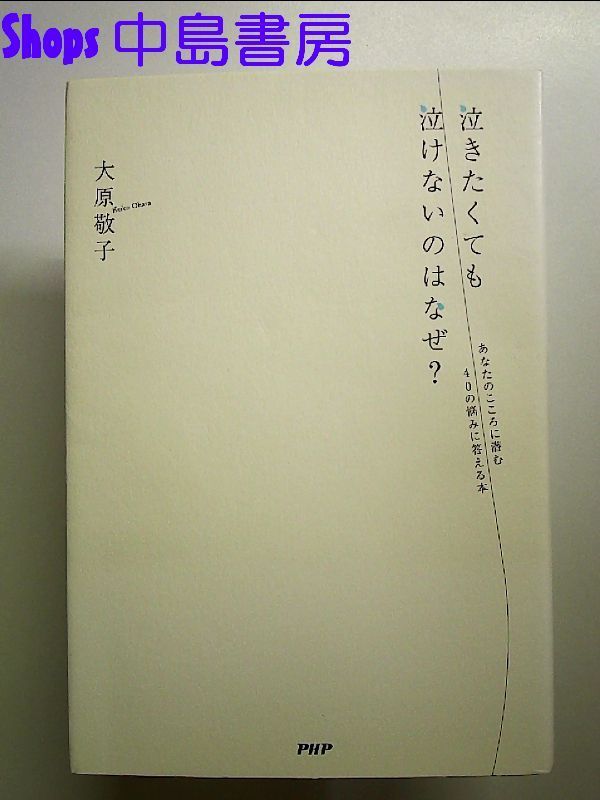 Shops 中島書房
泣きたくても
泣けないのはなぜ？
あなたのこころに潜む
40の悩みに答える本
大原敬子
Keiko Ohara
PHP